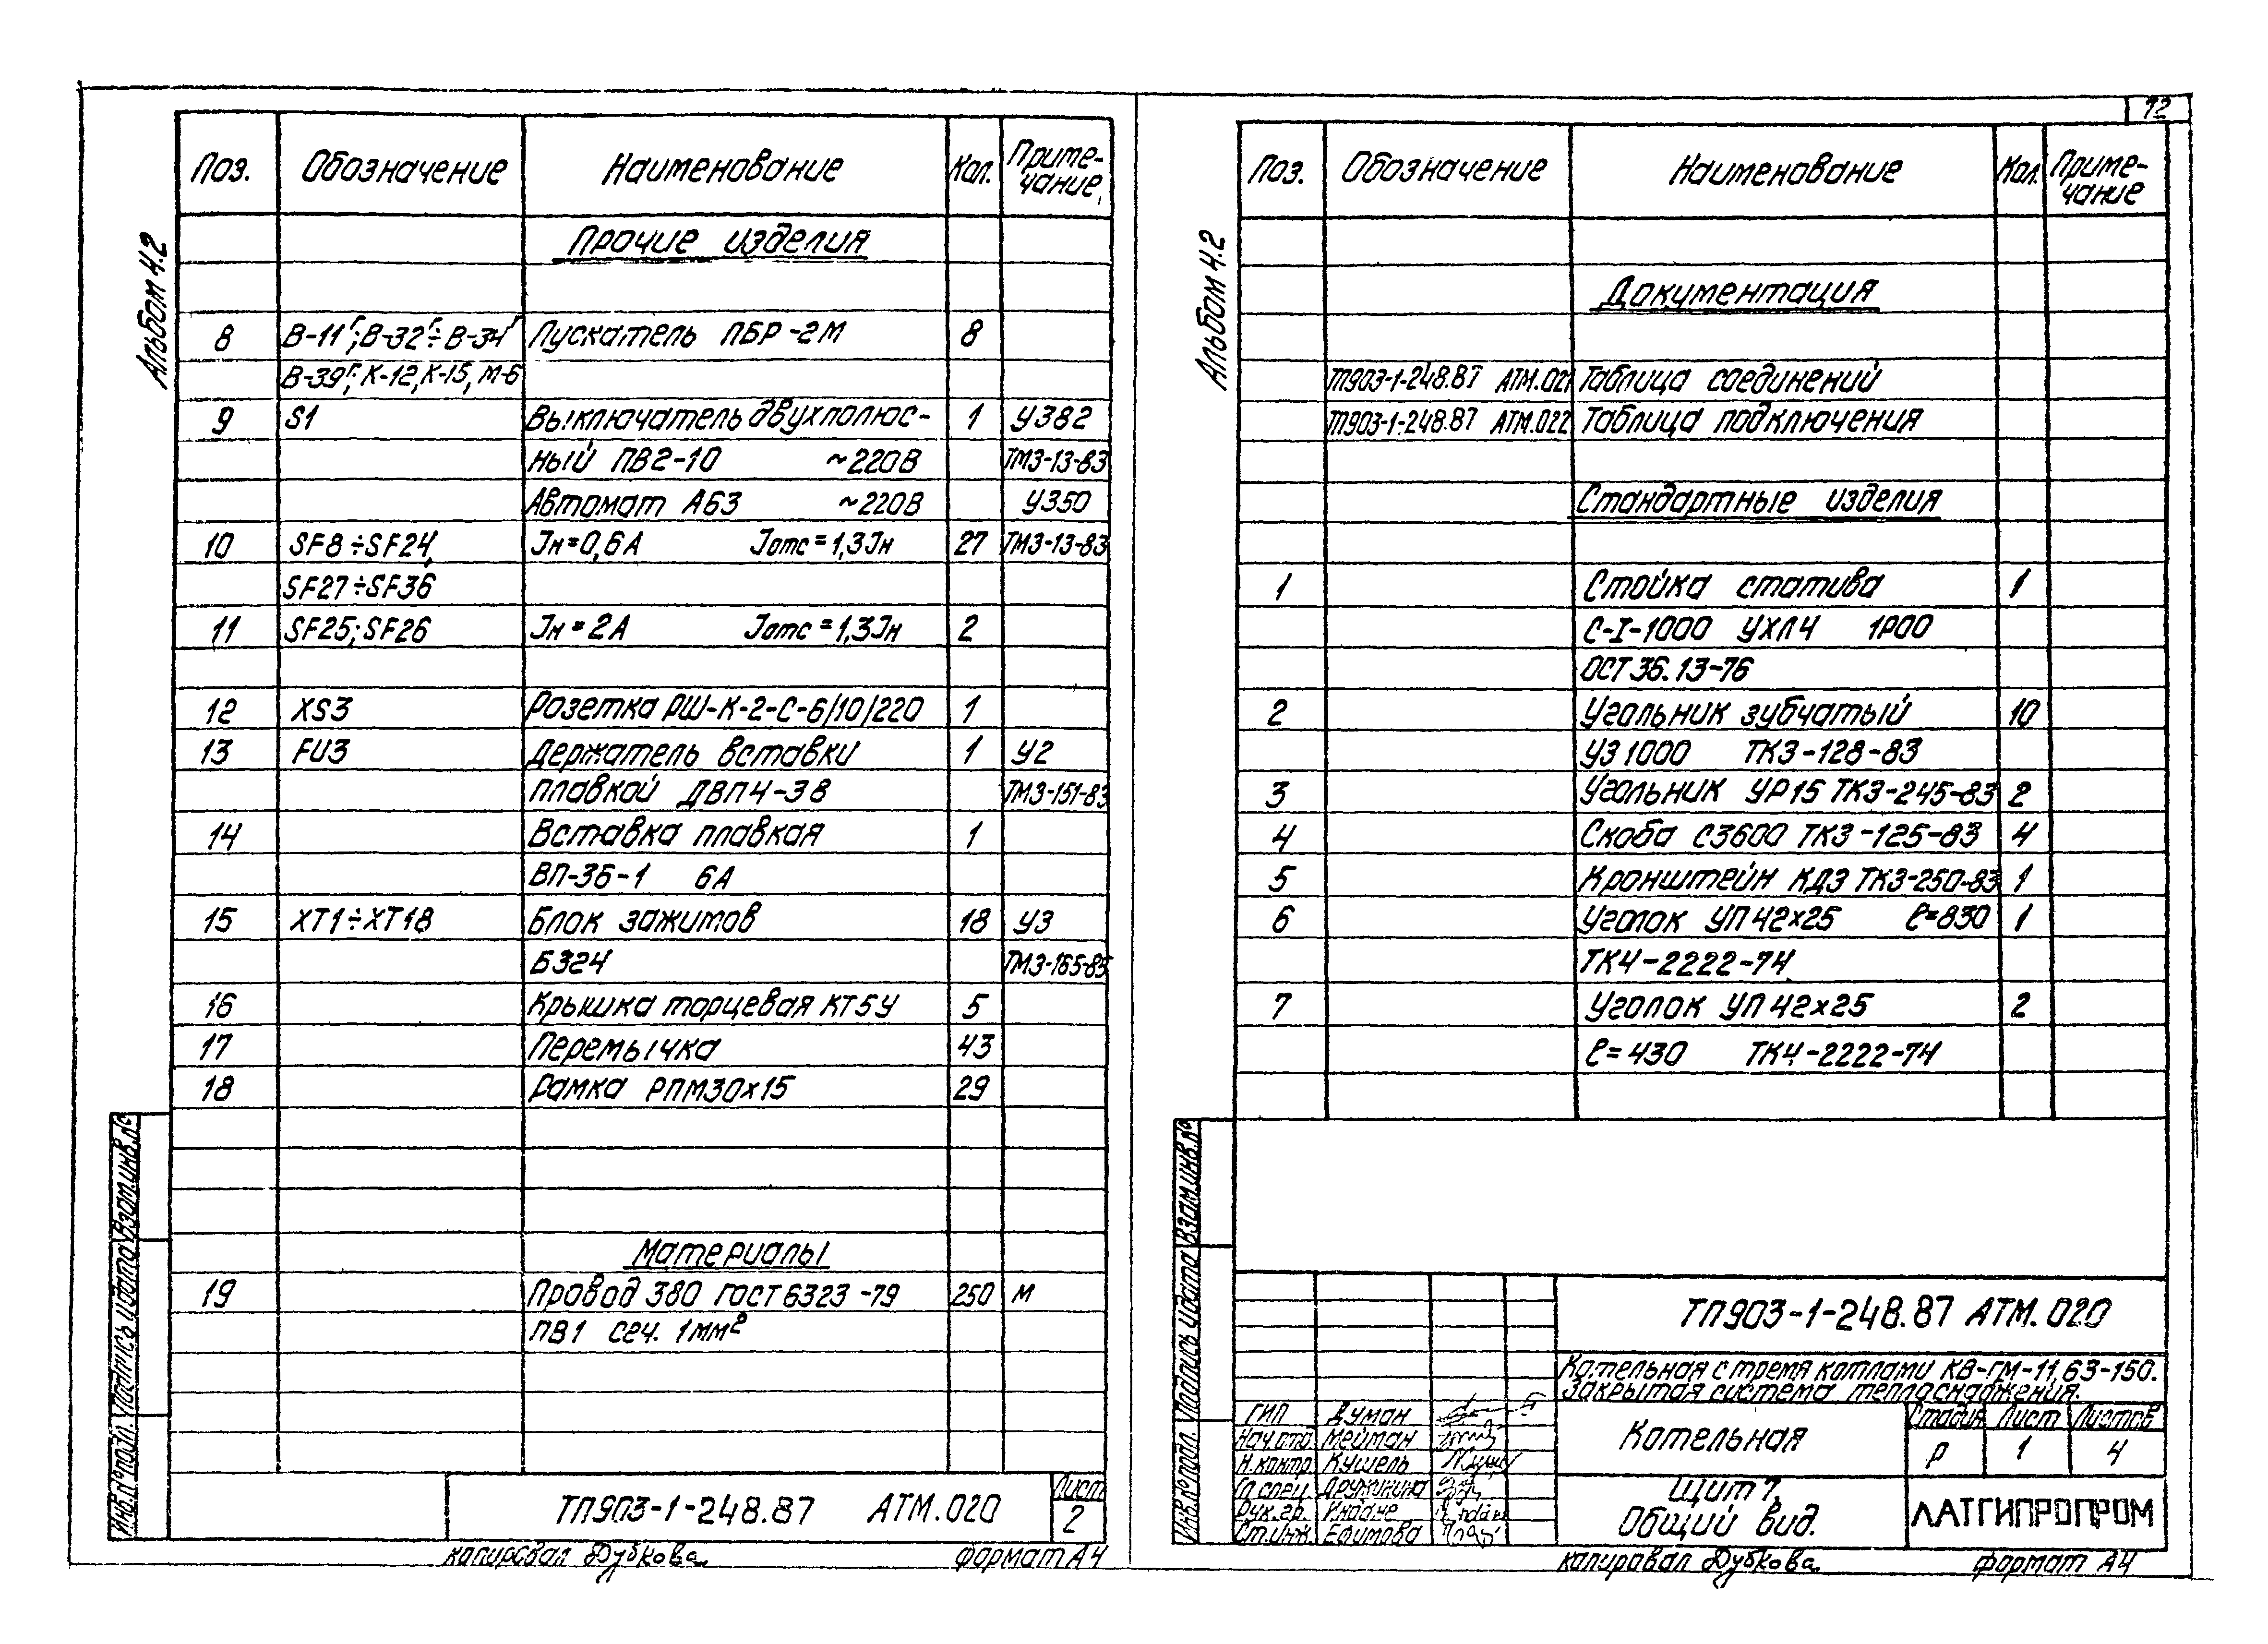 Альбом 4.2
Поз. Обозначение Наименование Кол. Приме-
чание
Прочие изделия
8 В-11г; В-32г÷В-34г Пускатель ПБР-2М 8
В-39г; К-12, К-15, М-6
9 S1 Выключатель двухполюс- 1 У382
ный ПВ2-10 ~220В ТМ3-13-83
Автомат А63 ~220В У350
10 SF8÷SF24, Jн=0,6А Jотс=1,3Jн 27 ТМ3-13-83
SF27÷SF36
11 SF25; SF26 Jн=2А Jотс=1,3Jн 2
12 XS3 Розетка РШ-К-2-С-6/10/220 1
13 FU3 Держатель вставки 1 У2
плавкой ДВП4-3В ТМ3-151-83
14 Вставка плавкая 1
ВП-3б-1 6А
15 XT1÷XT18 Блок зажимов 18 У3
Б324 ТМ3-165-85
16 Крышка торцевая КТ5У 5
17 Перемычка 43
18 Рамка РПМ30х15 29
Материалы
19 Провод 380 ГОСТ 6323-79 250 м
ПВ1 сеч. 1мм²
Инв.№подл. Подпись и дата Взам.инв.№
ТП903-1-248.87 АТМ.020 Лист
2
копировал Дубкова формат А4
12
Альбом 4.2
Поз. Обозначение Наименование Кол. Приме-
чание
Документация
ТП903-1-248.87 АТМ.021 Таблица соединений
ТП903-1-248.87 АТМ.022 Таблица подключения
Стандартные изделия
1 Стойка статива 1
С-I-1000 УХЛ4 IP00
ОСТ 36.13-76
2 Угольник зубчатый 10
УЗ 1000 ТК3-128-83
3 Угольник УР15 ТК3-245-83 2
4 Скоба С3600 ТК3-125-83 4
5 Кронштейн КДЭ ТК3-250-83 1
6 Уголок УП 42х25 ℓ=830 1
ТК4-2222-74
7 Уголок УП 42х25 2
ℓ=430 ТК4-2222-74
Инв.№подл. Подпись и дата Взам.инв.№
ТП903-1-248.87 АТМ.020
Котельная с тремя котлами КВ-ГМ-11,63-150.
Закрытая система теплоснабжения.
ГИП Думан
Нач.отд Мейман
Н.контр Кушель
Гл.спец. Дружинина
Рук.гр. Индане
Ст.инж. Ефимова
Котельная
Стадия Лист Листов
Р 1 4
Щит 7.
Общий вид.
ЛАТГИПРОПРОМ
копировал Дубкова формат А4